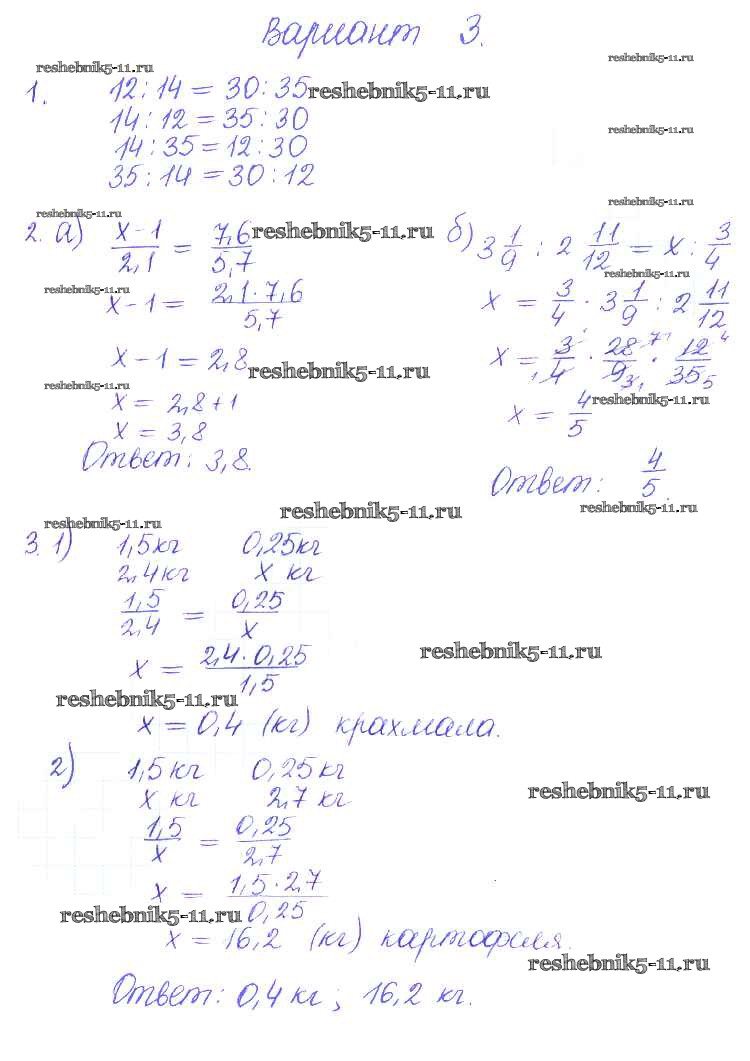 Вариант 3.
reshebnik5-11.ru
reshebnik5-11.ru
1. 12 : 14 = 30 : 35 reshebnik5-11.ru
14 : 12 = 35 : 30
reshebnik5-11.ru
14 : 35 = 12 : 30
35 : 14 = 30 : 12
reshebnik5-11.ru
reshebnik5-11.ru
2. а) (x-1)/2,1 = 7,6/5,7 reshebnik5-11.ru
б) 3 1/9 : 2 11/12 = x : 3/4
reshebnik5-11.ru
reshebnik5-11.ru
x-1 = (2,1 · 7,6)/5,7
x = 3/4 · 3 1/9 : 2 11/12
x-1 = 2,8 reshebnik5-11.ru
x = 3/4 · 28/9 · 12/35
1 7 4 3 1 5
reshebnik5-11.ru
x = 2,8 + 1
x = 4/5 reshebnik5-11.ru
x = 3,8
Ответ: 3,8.
Ответ: 4/5.
reshebnik5-11.ru
reshebnik5-11.ru
reshebnik5-11.ru
3. 1) 1,5 кг 0,25 кг
2,4 кг x кг
1,5/2,4 = 0,25/x
x = (2,4 · 0,25)/1,5
reshebnik5-11.ru
reshebnik5-11.ru
x = 0,4 (кг) крахмала.
2) 1,5 кг 0,25 кг
x кг 2,7 кг
reshebnik5-11.ru
1,5/x = 0,25/2,7
x = (1,5 · 2,7)/0,25
reshebnik5-11.ru
x = 16,2 (кг) картофеля.
reshebnik5-11.ru
Ответ: 0,4 кг; 16,2 кг.